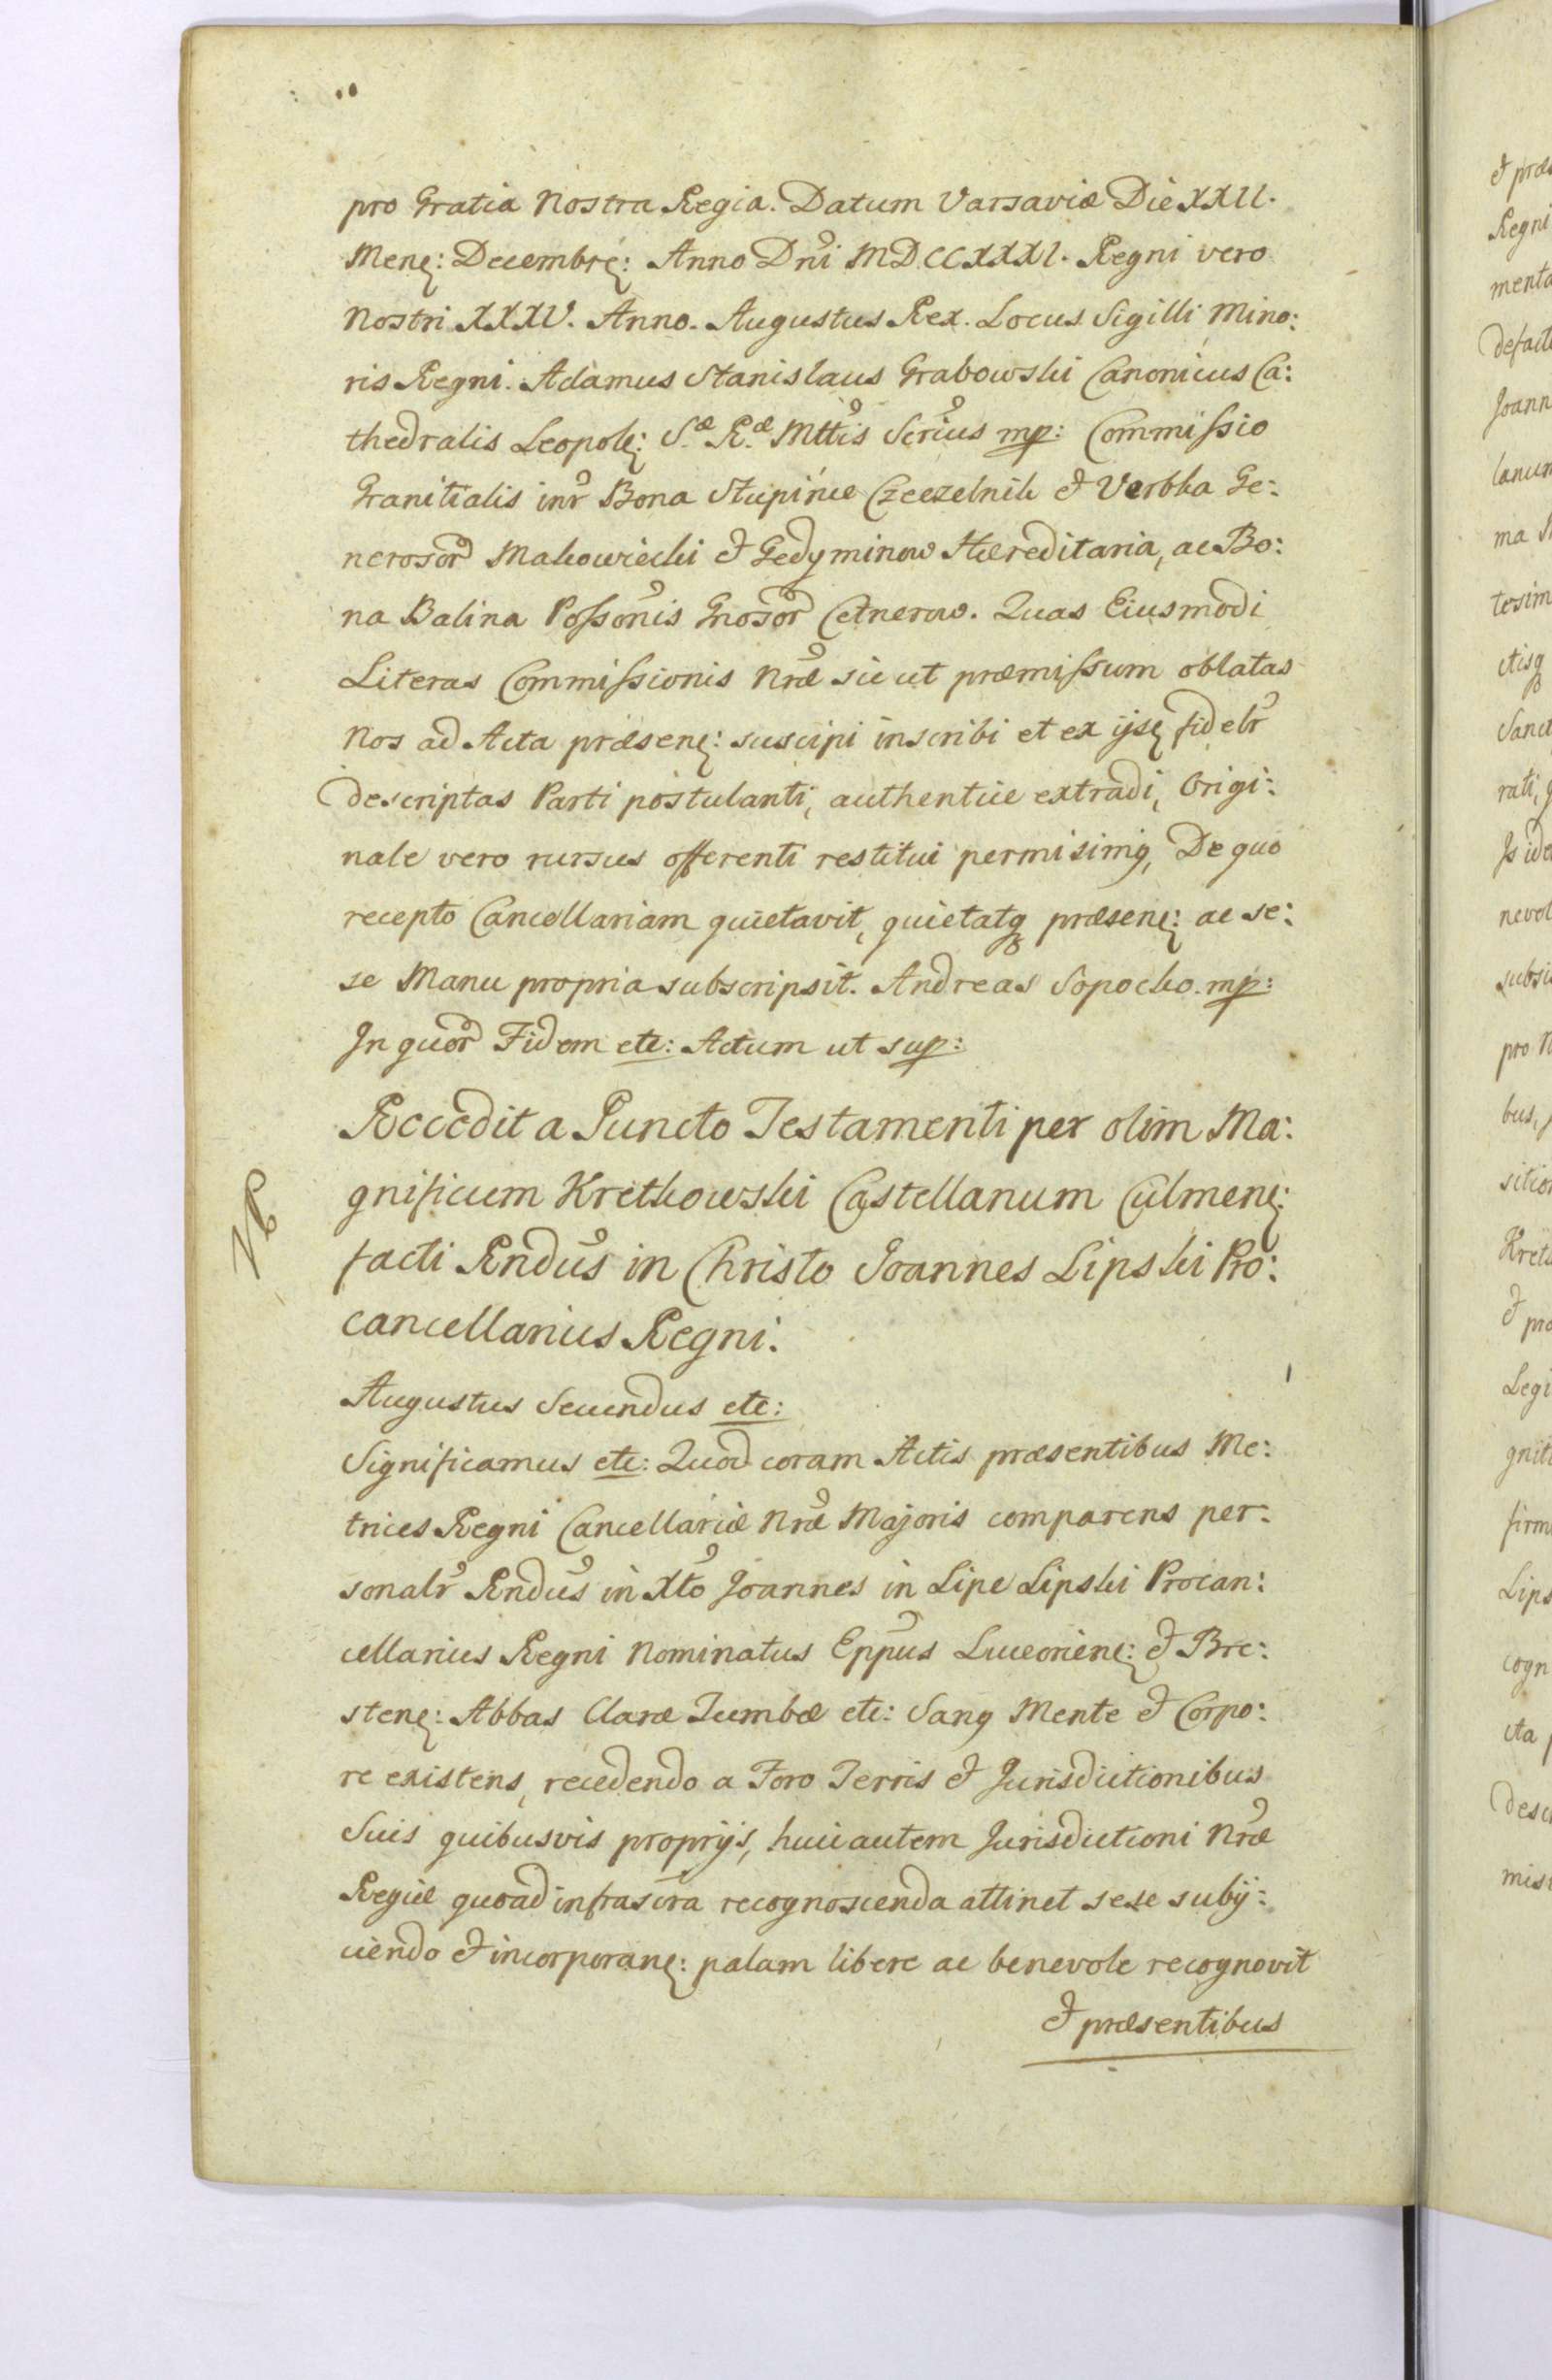 pro Gratia Nostra Regia. Datum Varsaviæ Die XXII.
Menẽ: Decembrẽ: Anno Dñi MDCCXXXI. Regni vero
Nostri XXXV. Anno. Augustus Rex. Locus Sigilli Mino:
ris Regni. Adamus Stanislaus Grabowski Canonicus Ca:
thedralis Leopolẽ: S.æ R.æ Mttis Scrius mp: Commissio
Granitialis inr Bona Stupince Czeczelnik et Verbka Ge:
nerosor Makowiecki et Gedyminow Hæreditaria, ac Bo:
na Balina Possonis Gnosor Cetnerow. Quas Eiusmodi
Literas Commissionis Nræ sicut præmissum oblatas
Nos ad Acta præsenẽ: suscipi inscribi et ex ijsẽ fidelr
descriptas Parti postulanti, authentice extradi, Origi:
nale vero rursus offerenti restitui permisimq, De quo
recepto Cancellariam quietavit, quietatq præsenẽ: ac se:
se Manu propria subscripsit. Andreas Sopocko. mp:
In quor Fidem etc: Actum ut sup:
Reccedit a Puncto Testamenti per olim Ma:
gnificum Kretkowski Castellanum Culmenẽ:
facti Rndus in Christo Joannes Lipski Pro:
cancellarius Regni.
Augustus Secundus etc:
Significamus etc: Quod coram Actis præsentibus Me:
trices Regni Cancellariæ Nræ Majoris comparens per:
sonalr Rndus in Xto Joannes in Lipe Lipski Procan:
cellarius Regni Nominatus Eppus Luceorienẽ: et Bre:
stenẽ: Abbas Claræ Tumbæ etc: Sanq Mente et Corpo:
re existens, recedendo a Foro Terris et Jurisdictionibus
Suis quibusvis proprijs, huic autem Jurisdictioni Nræ
Regiæ quoad infrascra recognoscenda attinet sese subij:
ciendo et incorporanẽ: palam libere ac benevole recognovit
et præsentibus